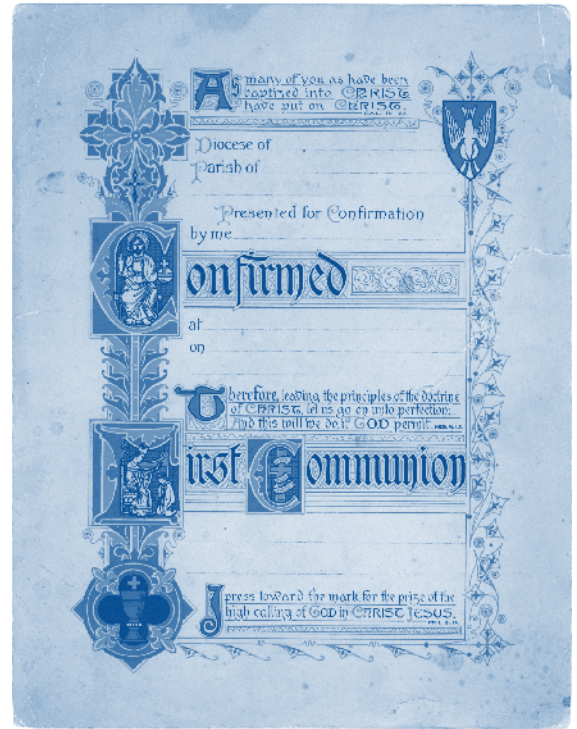 As many of you as have been
baptized into CHRIST
have put on CHRIST.
Diocese of
Parish of
Presented for Confirmation
by me
Confirmed
at
on
Therefore, leaving the principles of the doctrine
of CHRIST, let us go on unto perfection:
And this will we do, if GOD permit.
First Communion
I press toward the mark for the prize of the
high calling of GOD in CHRIST JESUS.